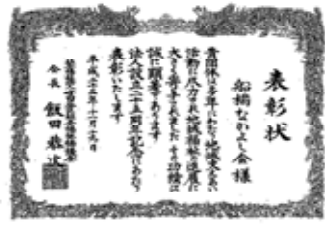 表彰状
船橋なかよし会 様
貴団体は多年にわたり地域支えあい
活動に尽力され地域福祉の進展に
大きく寄与されました その功績は
誠に顕著であります
法人設立二十五周年記念にあたり
表彰いたします
平成二十五年十一月十九日
会長 飯田